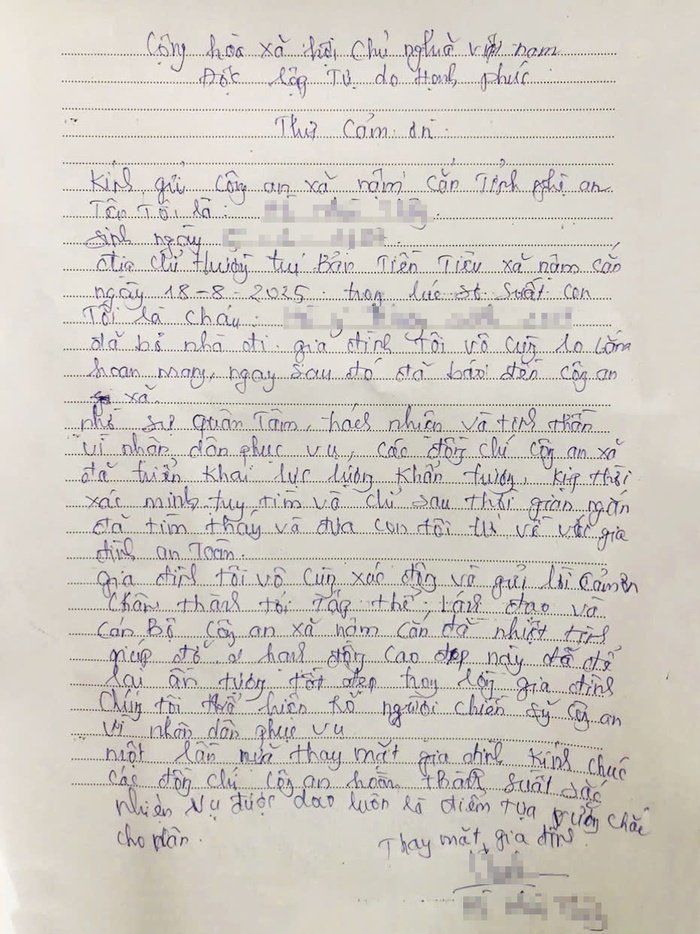 Cộng hòa xã hội chủ nghĩa việt nam
Độc lập Tự do Hạnh phúc
Thư Cảm ơn
Kính gửi Công an xã nậm cắn Tỉnh nghệ an
Tên Tôi là :
sinh ngày
địa chỉ thường trú Bản Tiền Tiêu xã nậm cắn
ngày 18-8-2025. trong lúc sơ suất con
Tôi là cháu.
đã bỏ nhà đi. gia đình tôi vô cùng lo lắng
hoan mang, ngay sau đó đã báo đến công an
xã.
nhờ sự quan Tâm, trách nhiên và tinh thần
vì nhân dân phục vụ, các đồng chí công an xã
đã triển khai lực lượng khẩn trương, kịp thời
xác minh truy tìm và chỉ sau thời gian ngắn
đã tìm thấy và đưa con tôi trở về với gia
đình an Toàn.
gia đình tôi vô cùng xúc động và gửi lời Cảm ơn
Chân thành tới Tập thể, lãnh đạo và
Cán Bộ Công an xã nậm Cắn đã nhiệt tình
giúp đỡ hành động cao đẹp này đã để
lại ấn tượng tốt đẹp trong lòng gia đình
Chúng tôi thể hiện rõ người chiến sỹ công an
vì nhân dân phục vụ
một lần nữa thay mặt gia đình kính chúc
các đồng chí công an hoàn thành suất sắc
nhiện vụ được dao luôn là điểm tựa vững chắc
cho dân.
Thay mặt gia đình